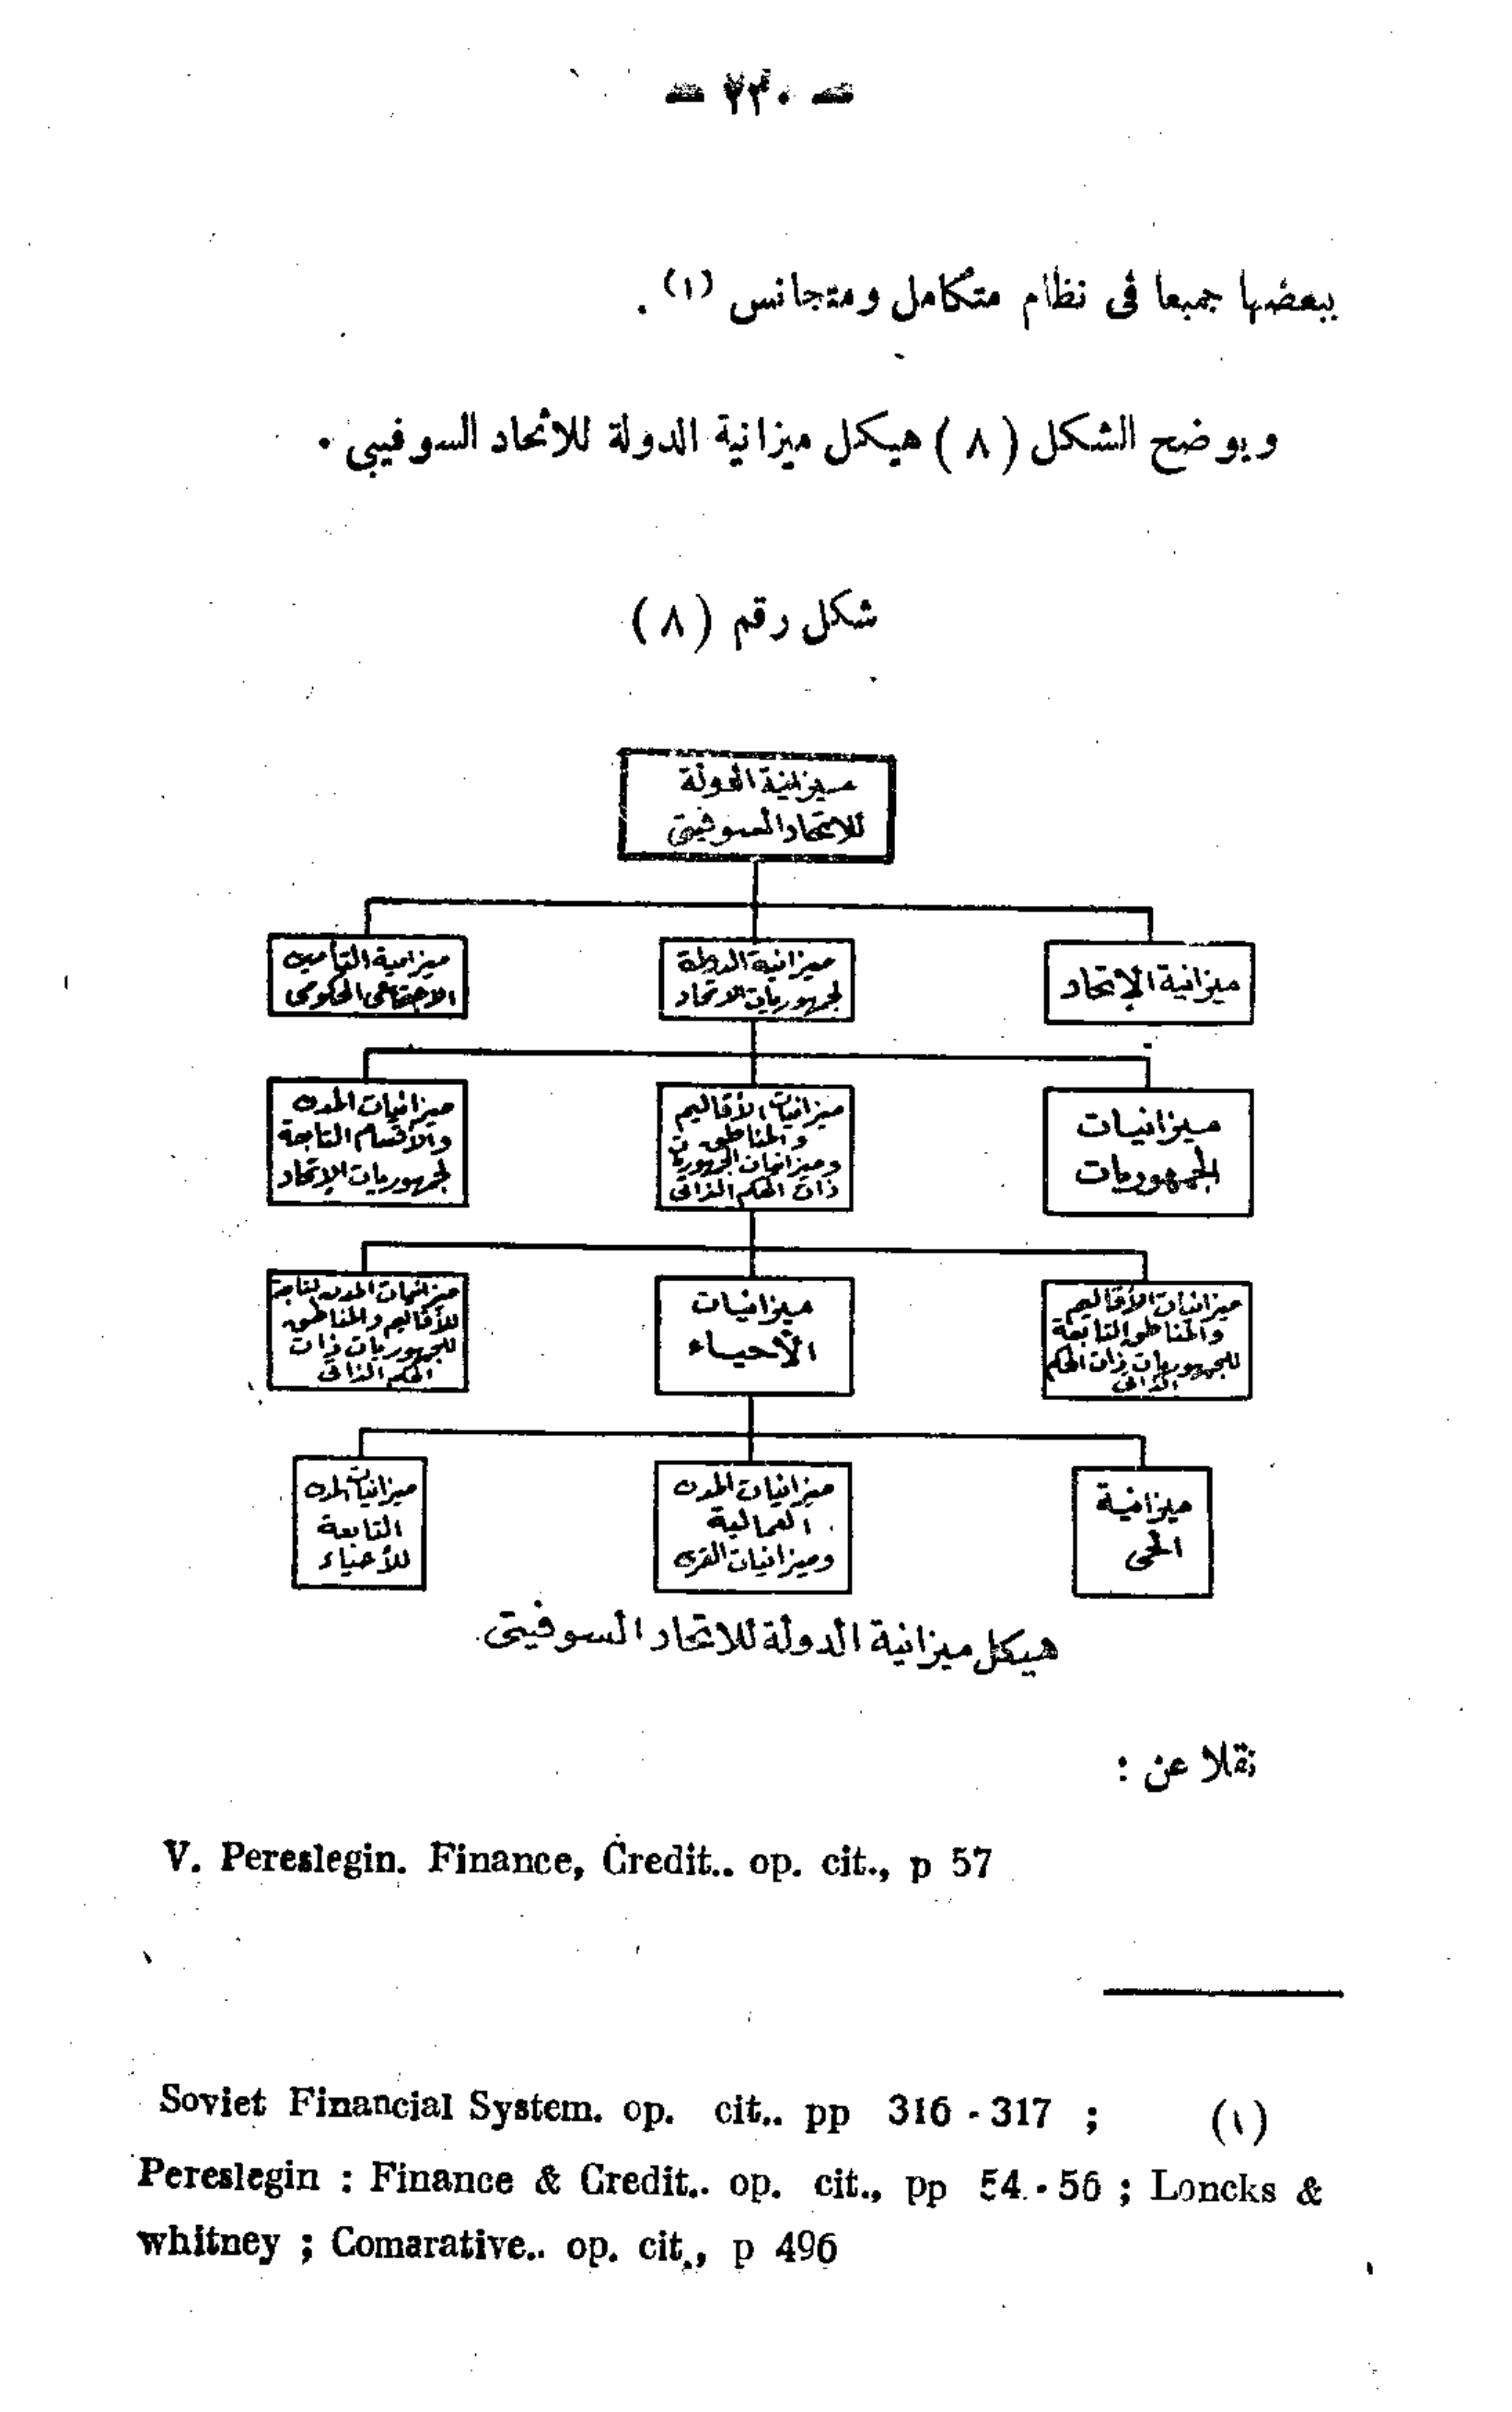 — ٧٣٠ —
ببعضها جميعا فى نظام متكامل ومتجانس (١) .
ويوضح الشكل ( ٨ ) هيكل ميزانية الدولة للاتحاد السوفيبى .
شكل رقم ( ٨ )
ميزانية الدولة
للاتحاد السوفيتى
ميزانية الإتحاد
ميزانية الدولة
لجمهوريات الاتحاد
ميزانية التأمين
الاجتماعى الحكومى
ميزانيات
الجمهوريات
ميزانيات الأقاليم
والمناطق
وميزانيات الجمهوريات
ذات الحكم الذاتى
ميزانيات المدن
والأقسام التابعة
لجمهوريات الإتحاد
ميزانيات الأقاليم
والمناطق التابعة
للجمهوريات ذات الحكم
الذاتى
ميزانيات
الأحياء
ميزانيات المدن التابعة
للأقاليم والمناطق
للجمهوريات ذات
الحكم الذاتى
ميزانية
الحى
ميزانيات المدن
العمالية
وميزانيات القرى
ميزانيات المدن
التابعة
للأحياء
هيكل ميزانية الدولة للاتحاد السوفيتى
نقلا عن :
V. Pereslegin. Finance, Credit.. op. cit., p 57
(١) Soviet Financial System. op. cit.. pp 316 - 317 ;
Pereslegin : Finance & Credit.. op. cit., pp 54 - 56 ; Loncks &
whitney ; Comarative.. op. cit., p 496